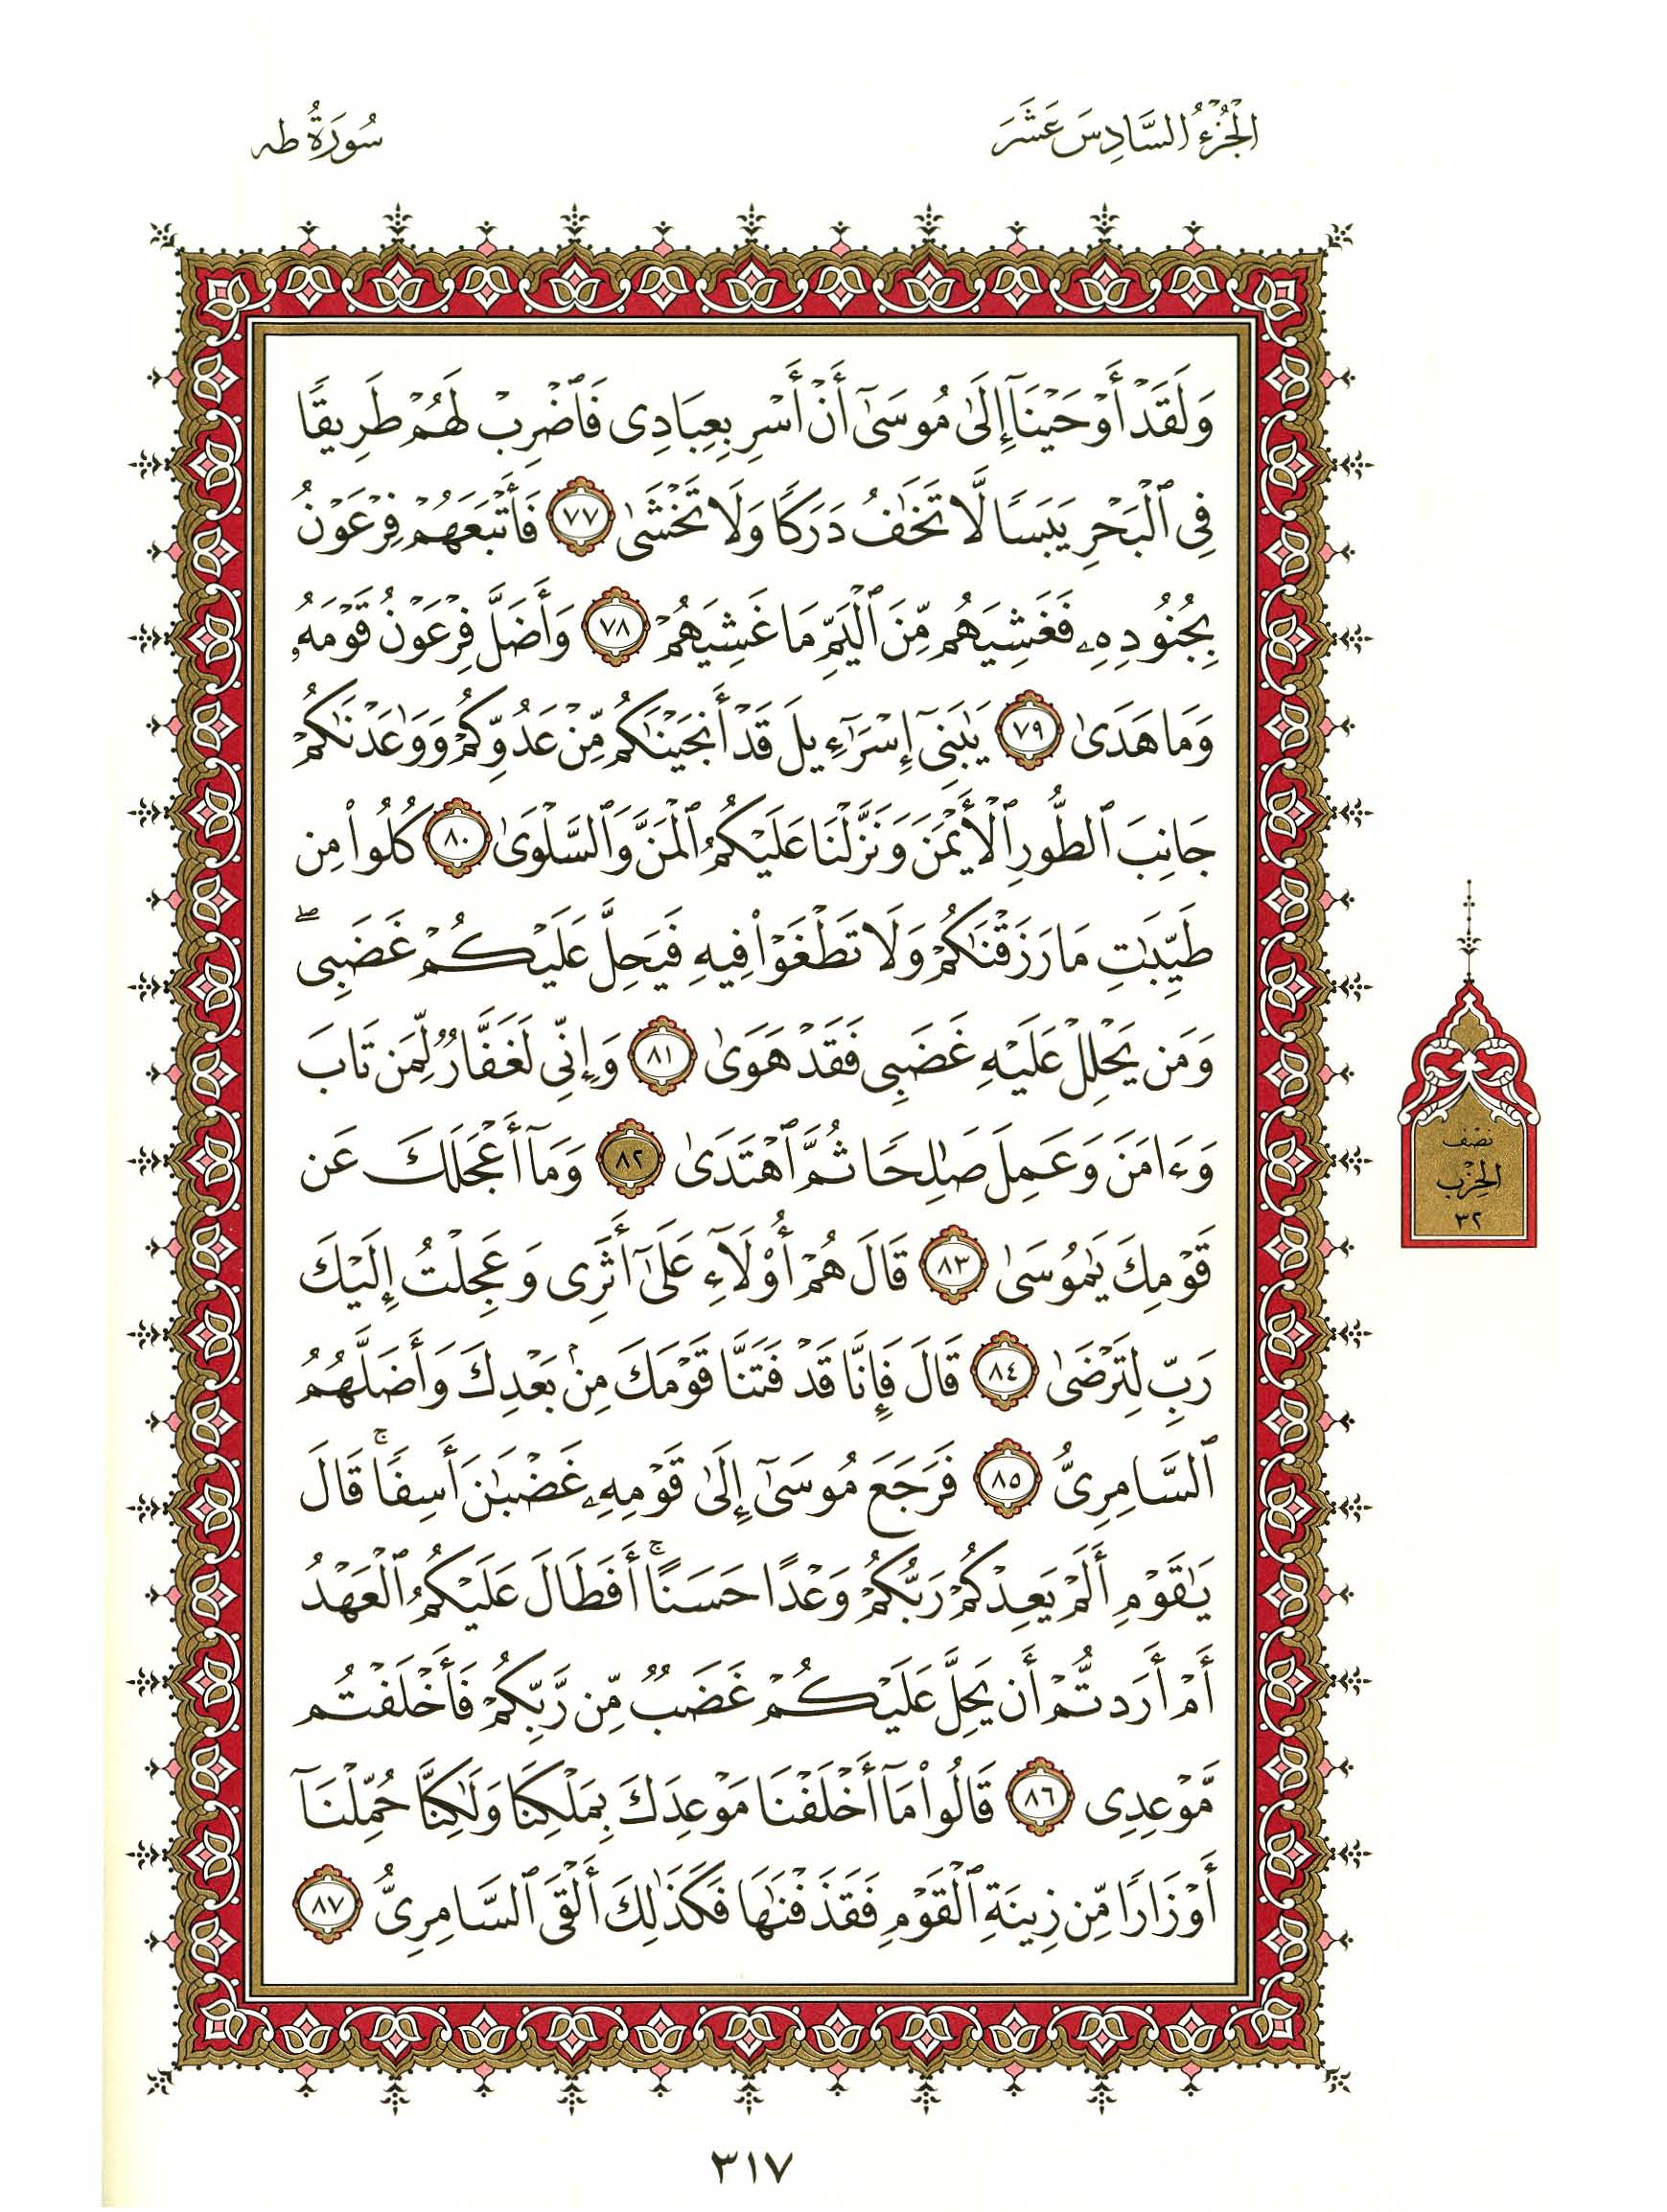 الجُزْءُ السَّادِسَ عَشَرَ
سُورَةُ طه
وَلَقَدْ أَوْحَيْنَآ إِلَىٰ مُوسَىٰٓ أَنْ أَسْرِ بِعِبَادِى فَٱضْرِبْ لَهُمْ طَرِيقًا
فِى ٱلْبَحْرِ يَبَسًا لَّا تَخَٰفُ دَرَكًا وَلَا تَخْشَىٰ ٧٧ فَأَتْبَعَهُمْ فِرْعَوْنُ
بِجُنُودِهِۦ فَغَشِيَهُم مِّنَ ٱلْيَمِّ مَا غَشِيَهُمْ ٧٨ وَأَضَلَّ فِرْعَوْنُ قَوْمَهُۥ
وَمَا هَدَىٰ ٧٩ يَٰبَنِىٓ إِسْرَٰٓءِيلَ قَدْ أَنجَيْنَٰكُم مِّنْ عَدُوِّكُمْ وَوَٰعَدْنَٰكُمْ
جَانِبَ ٱلطُّورِ ٱلْأَيْمَنَ وَنَزَّلْنَا عَلَيْكُمُ ٱلْمَنَّ وَٱلسَّلْوَىٰ ٨٠ كُلُوا۟ مِن
طَيِّبَٰتِ مَا رَزَقْنَٰكُمْ وَلَا تَطْغَوْا۟ فِيهِ فَيَحِلَّ عَلَيْكُمْ غَضَبِىۖ
وَمَن يَحْلِلْ عَلَيْهِ غَضَبِى فَقَدْ هَوَىٰ ٨١ وَإِنِّى لَغَفَّارٌ لِّمَن تَابَ
وَءَامَنَ وَعَمِلَ صَٰلِحًا ثُمَّ ٱهْتَدَىٰ ٨٢ وَمَآ أَعْجَلَكَ عَن
قَوْمِكَ يَٰمُوسَىٰ ٨٣ قَالَ هُمْ أُو۟لَآءِ عَلَىٰٓ أَثَرِى وَعَجِلْتُ إِلَيْكَ
رَبِّ لِتَرْضَىٰ ٨٤ قَالَ فَإِنَّا قَدْ فَتَنَّا قَوْمَكَ مِنۢ بَعْدِكَ وَأَضَلَّهُمُ
ٱلسَّامِرِىُّ ٨٥ فَرَجَعَ مُوسَىٰٓ إِلَىٰ قَوْمِهِۦ غَضْبَٰنَ أَسِفًاۚ قَالَ
يَٰقَوْمِ أَلَمْ يَعِدْكُمْ رَبُّكُمْ وَعْدًا حَسَنًاۚ أَفَطَالَ عَلَيْكُمُ ٱلْعَهْدُ
أَمْ أَرَدتُّمْ أَن يَحِلَّ عَلَيْكُمْ غَضَبٌ مِّن رَّبِّكُمْ فَأَخْلَفْتُم
مَّوْعِدِى ٨٦ قَالُوا۟ مَآ أَخْلَفْنَا مَوْعِدَكَ بِمَلْكِنَا وَلَٰكِنَّا حُمِّلْنَآ
أَوْزَارًا مِّن زِينَةِ ٱلْقَوْمِ فَقَذَفْنَٰهَا فَكَذَٰلِكَ أَلْقَى ٱلسَّامِرِىُّ ٨٧
نصف
الحزب
٣٢
٣١٧